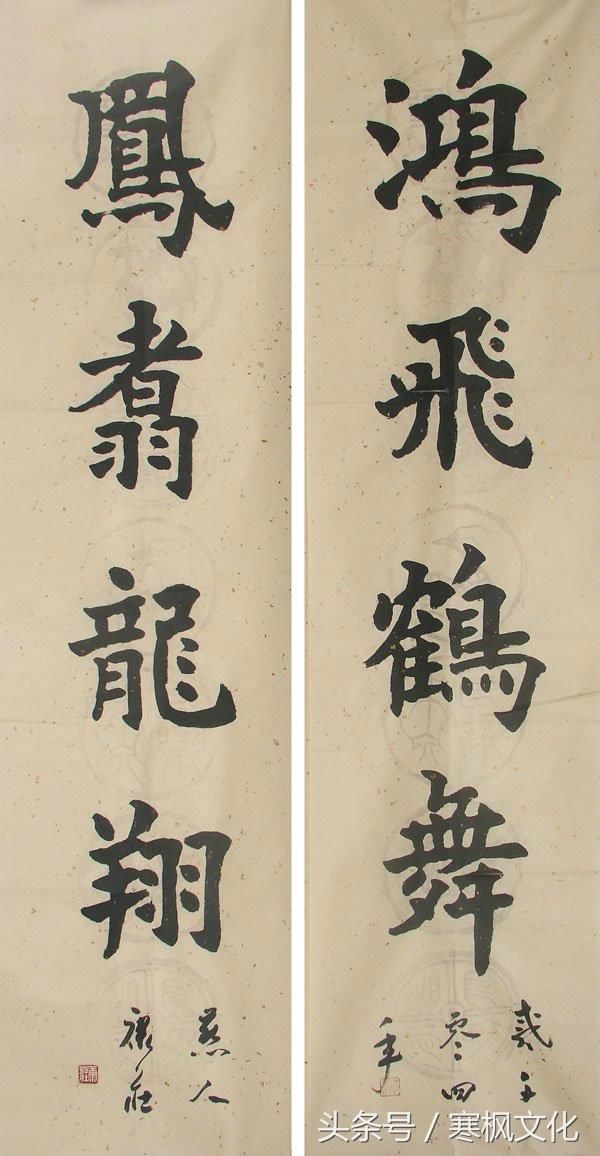 鴻飛鶴舞
貳千
零四
年
鳳翥龍翔
燕人
头条号 / 寒枫文化